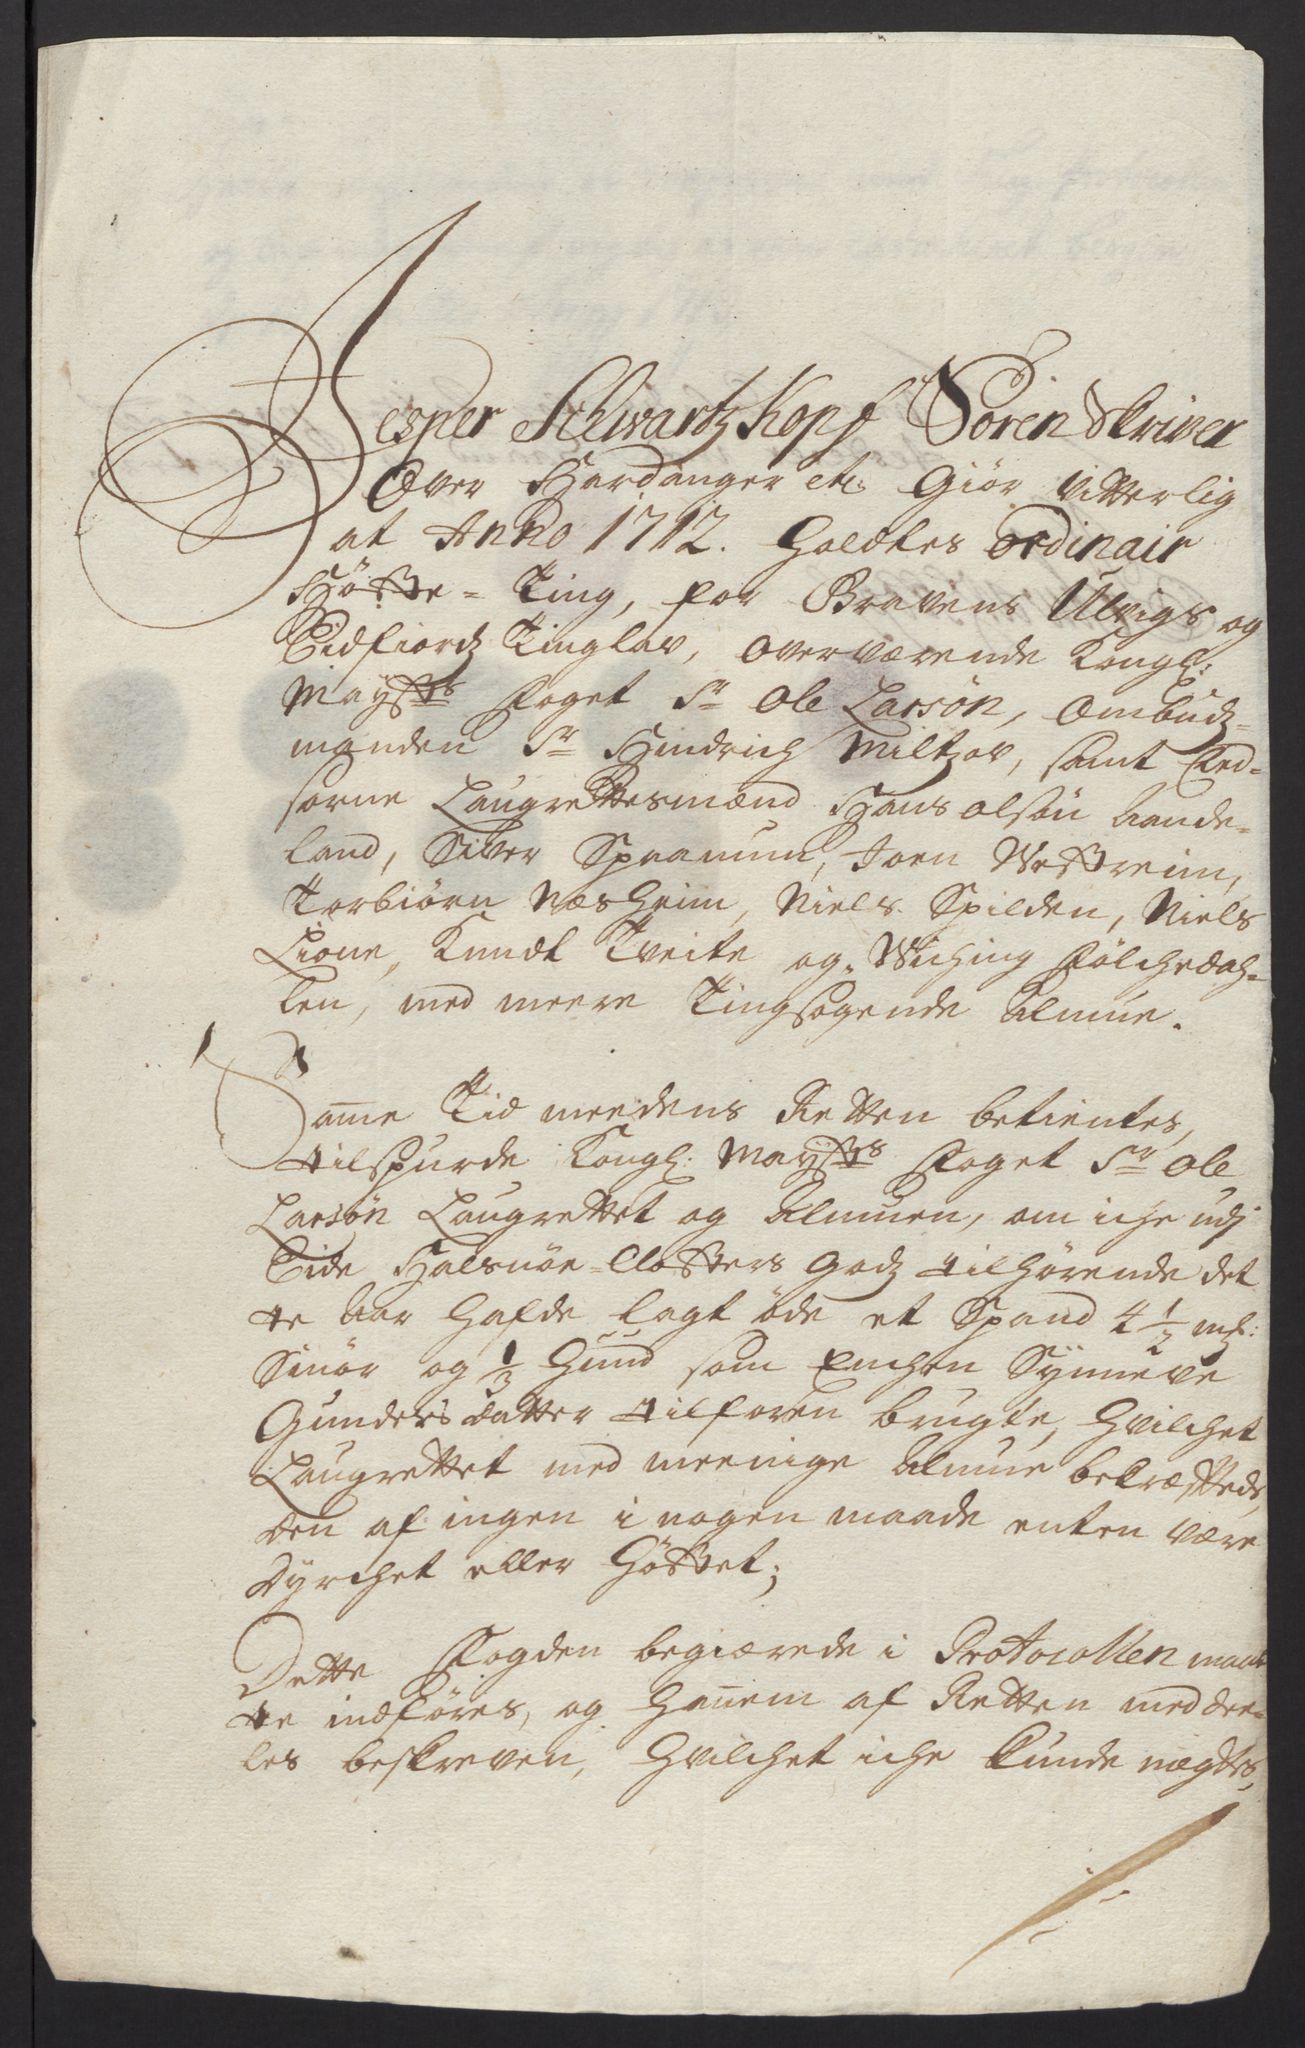 Jesper Schwartz Kopf Soren Skriver
Over Hardanger etc: Giör vitterlig
at Anno 1712. Holdtes ordinair
Höste = Ting, for Gravens Ulvigs og
Eidfiordz Tinglav, overværende Kongl:
Maysts foget Sr Ole Larsön, Ombudz-
manden Sr Hindrich Miltzov, samt Eed-
sorne Laugrettesmænd Hans olsön Aande-
land, Siver Spaanum, Joen Westreim,
Torbiörn Næsheim, Niels Spilden, Niels
Lione, Knudt Tveite og Wiching Fölchedah-
len, med meere Tingsögende Almue.
Samme Tid meedens Retten betientes,
tilspurde Kongl: Maysts foget Sr Ole
Larsön Laugrettet og Almuen, om iche udj
Eide Halsnöe Closters Godz tilhörende det
te Aar hafde lagt öde et Spand 4 1/2 mk:
Smör og 1/3 Hund som Enchen Synneve
Gundersdatter tilforen brugte, hvilchet
Laugrettet med meenige Almue bekræftede,
den af ingen i nogen maade enten være
dyrchet eller höstet;
Dette Fogden begiærede i Protocollen maat
te indföres, og hannem af Retten meddee-
les beskreven, hvilchet iche kunde nægtes,